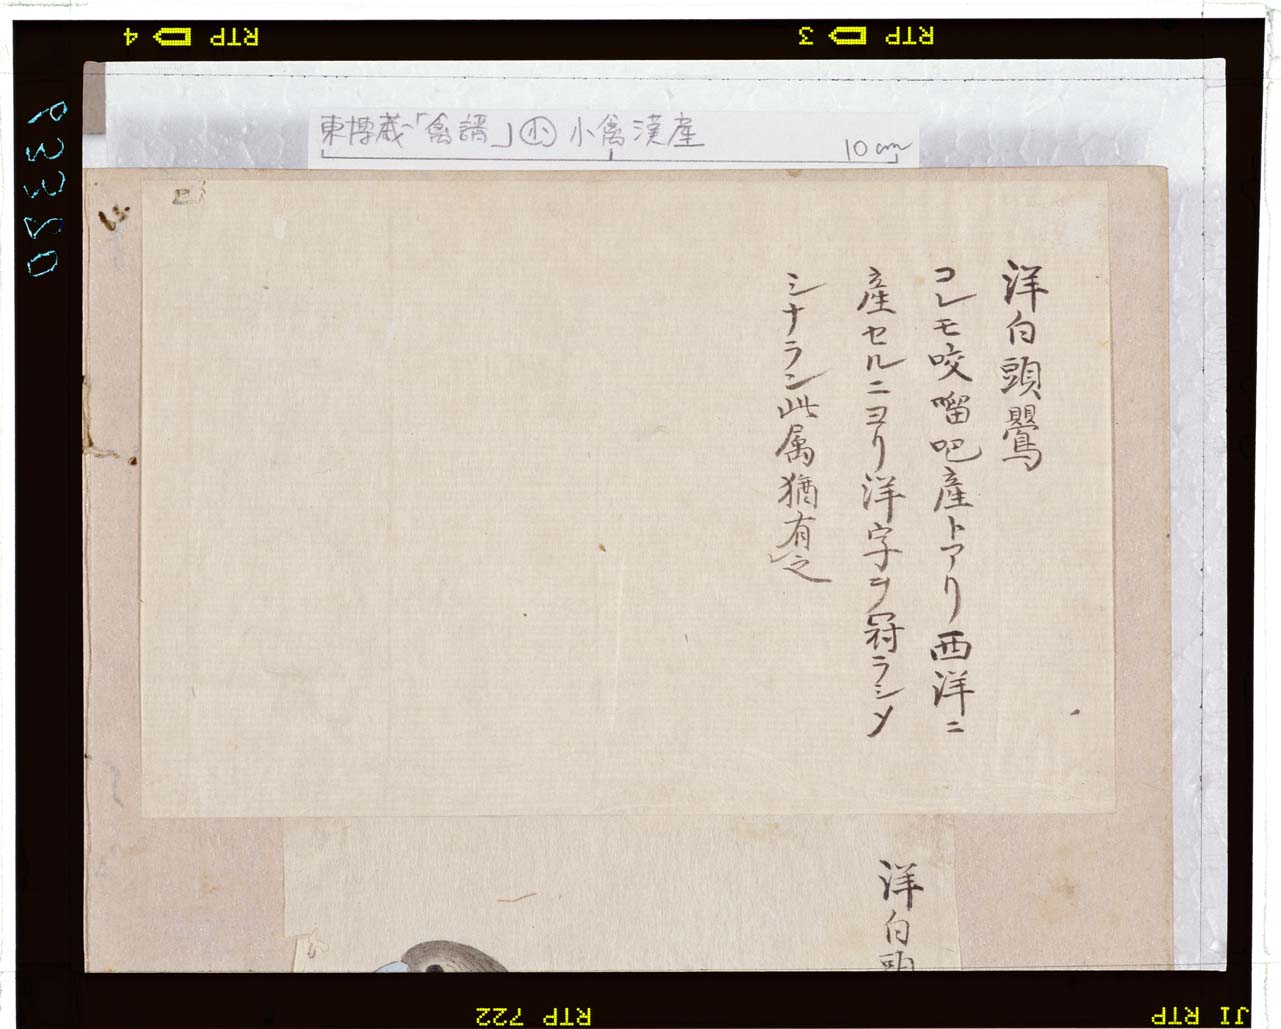 東博蔵「禽譜」㋭ 小禽漢産
10cm
洋白頭鸎
コレモ咬𠺕吧産トアリ西洋ニ
産セルニヨリ洋字ヲ冠ラシメ
シナラン此属猶有之
洋白頭
RTP 4
RTP 3
RTP 722
JI RTP